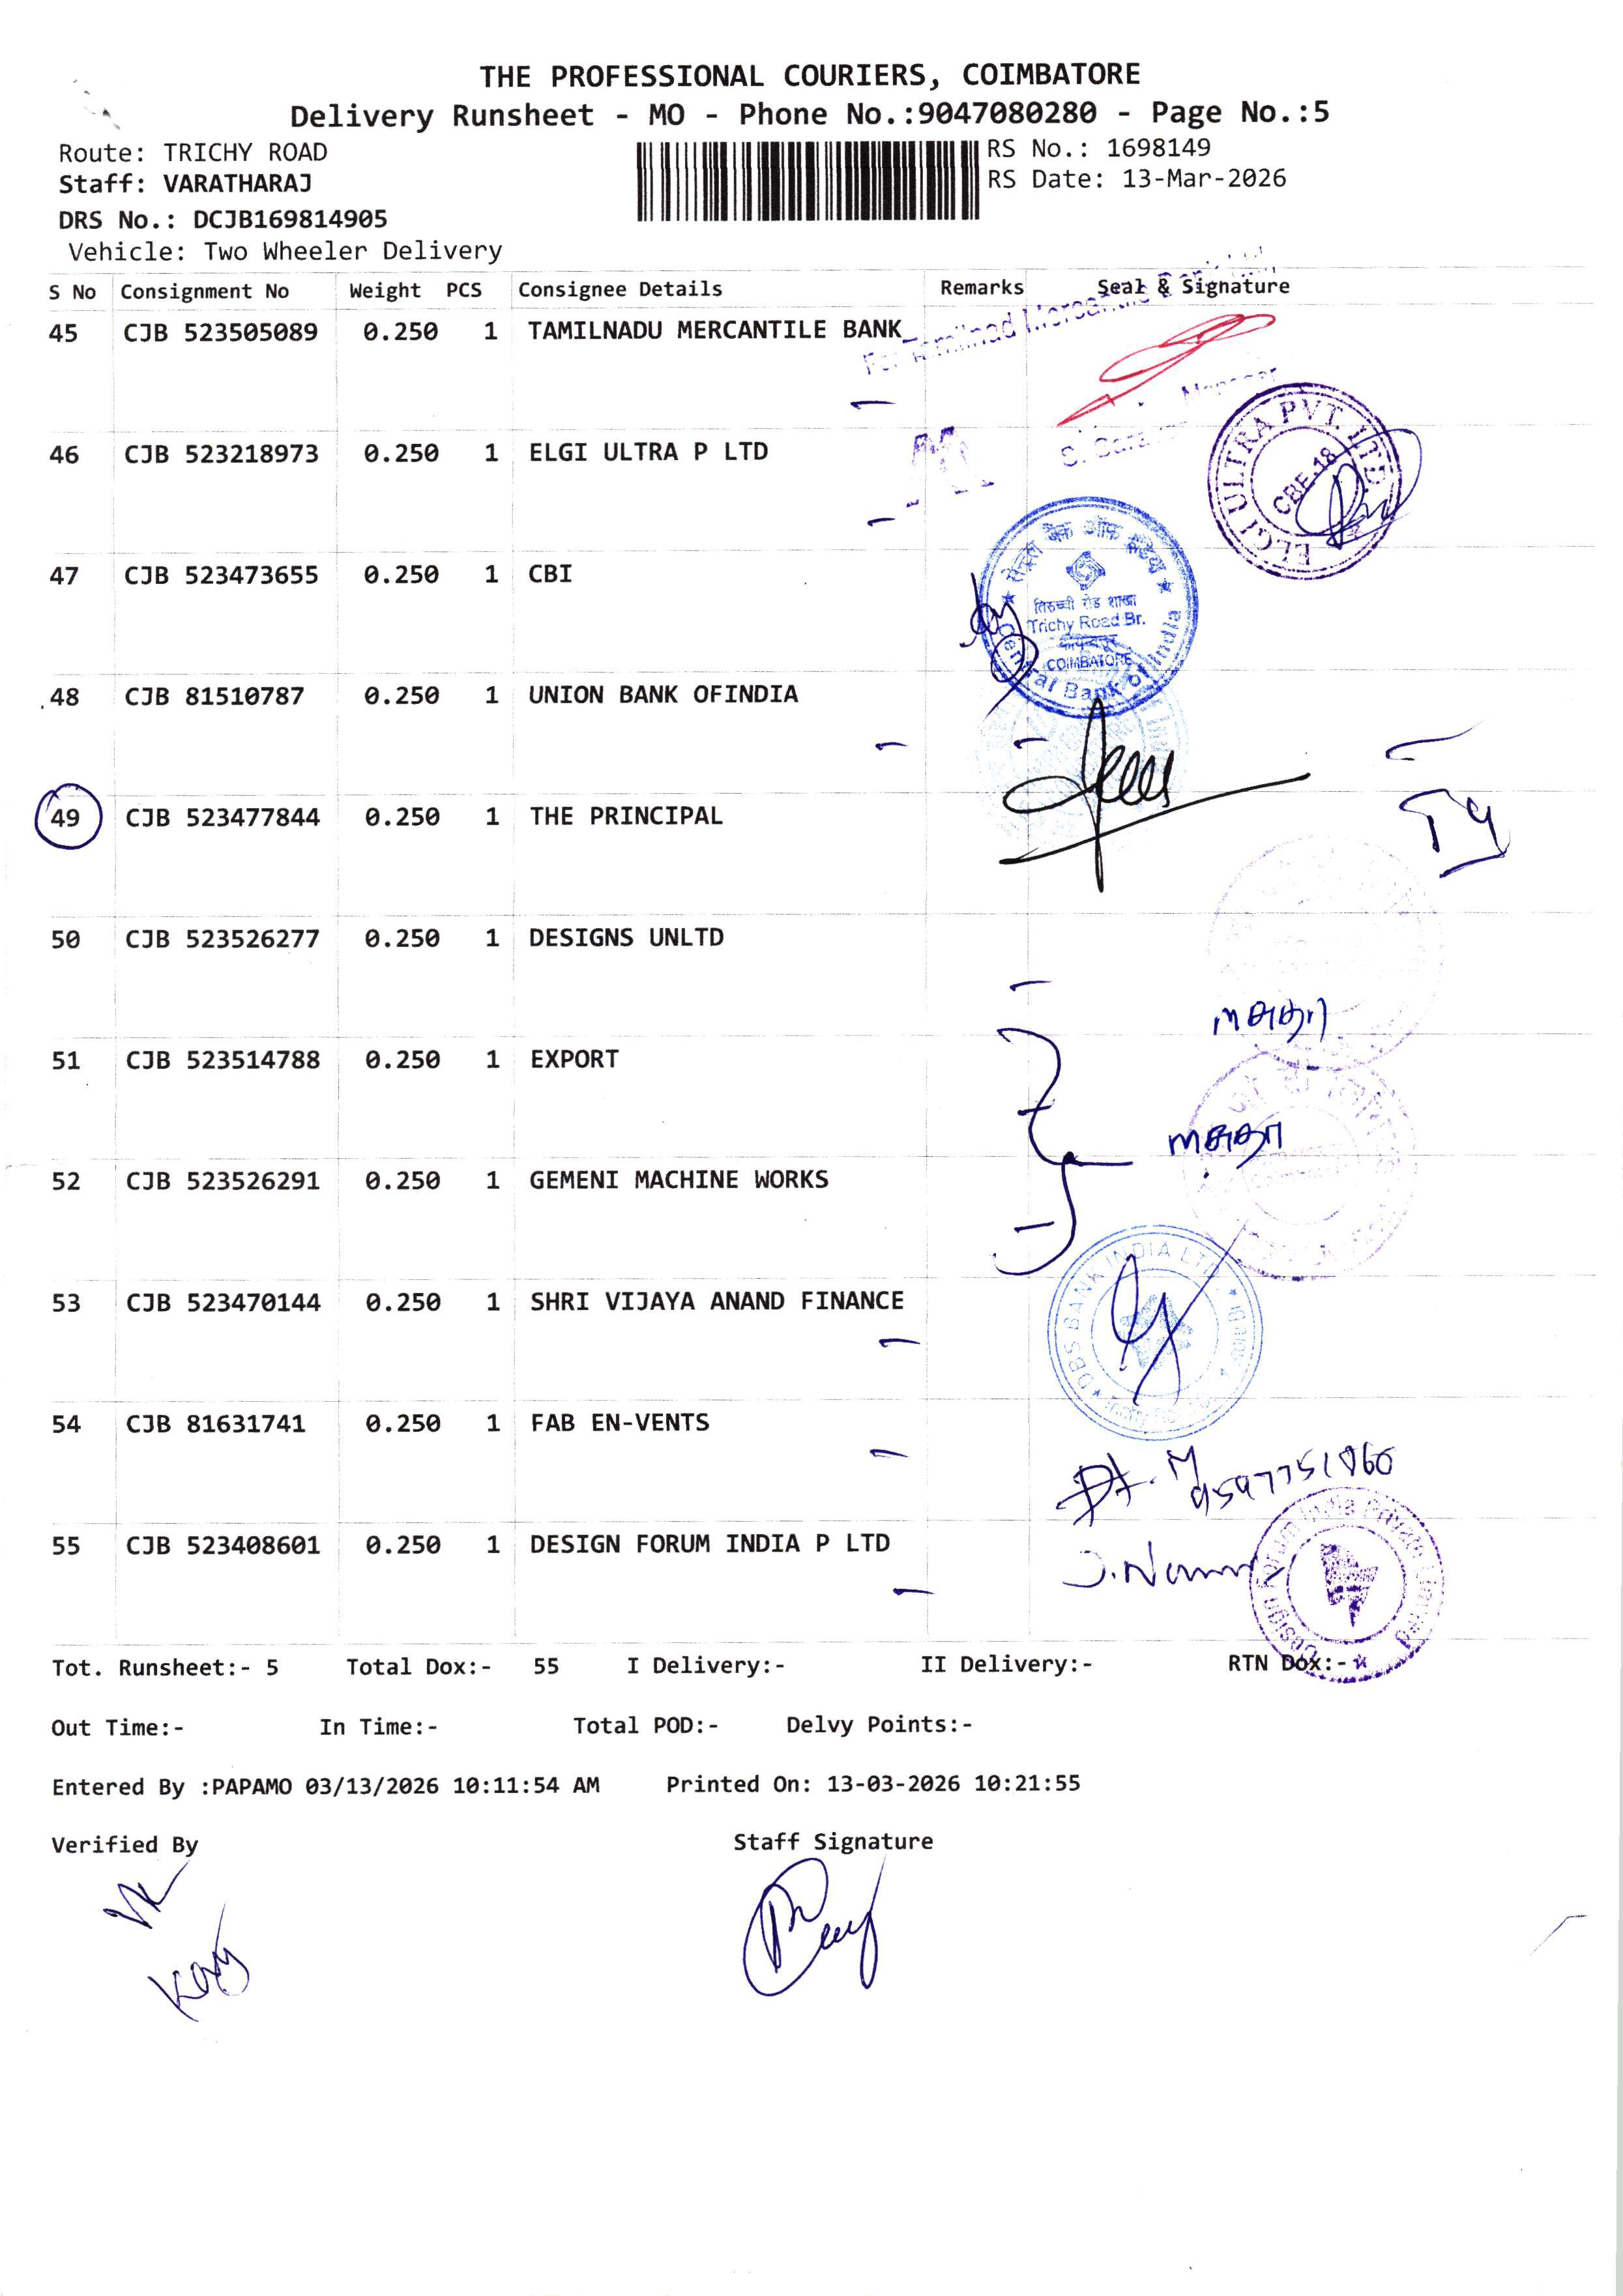 THE PROFESSIONAL COURIERS, COIMBATORE
Delivery Runsheet - MO - Phone No.:9047080280 - Page No.:5
Route: TRICHY ROAD
RS No.: 1698149
Staff: VARATHARAJ
RS Date: 13-Mar-2026
DRS No.: DCJB169814905
Vehicle: Two Wheeler Delivery
S No Consignment No Weight PCS Consignee Details Remarks Seal & Signature
45 CJB 523505089 0.250 1 TAMILNADU MERCANTILE BANK
Manager
46 CJB 523218973 0.250 1 ELGI ULTRA P LTD
ELGI ULTRA PVT. LTD.
CBE-18
47 CJB 523473655 0.250 1 CBI
सेन्ट्रल बैंक ऑफ इंडिया
तिरुच्ची रोड शाखा
Trichy Road Br.
COIMBATORE
Central Bank of India
48 CJB 81510787 0.250 1 UNION BANK OFINDIA
49 CJB 523477844 0.250 1 THE PRINCIPAL
50 CJB 523526277 0.250 1 DESIGNS UNLTD
51 CJB 523514788 0.250 1 EXPORT
52 CJB 523526291 0.250 1 GEMENI MACHINE WORKS
53 CJB 523470144 0.250 1 SHRI VIJAYA ANAND FINANCE
DBS BANK INDIA LTD
54 CJB 81631741 0.250 1 FAB EN-VENTS
55 CJB 523408601 0.250 1 DESIGN FORUM INDIA P LTD
Design Forum India Private Limited
Tot. Runsheet:- 5 Total Dox:- 55 I Delivery:- II Delivery:- RTN Dox:-
Out Time:- In Time:- Total POD:- Delvy Points:-
Entered By :PAPAMO 03/13/2026 10:11:54 AM Printed On: 13-03-2026 10:21:55
Verified By Staff Signature